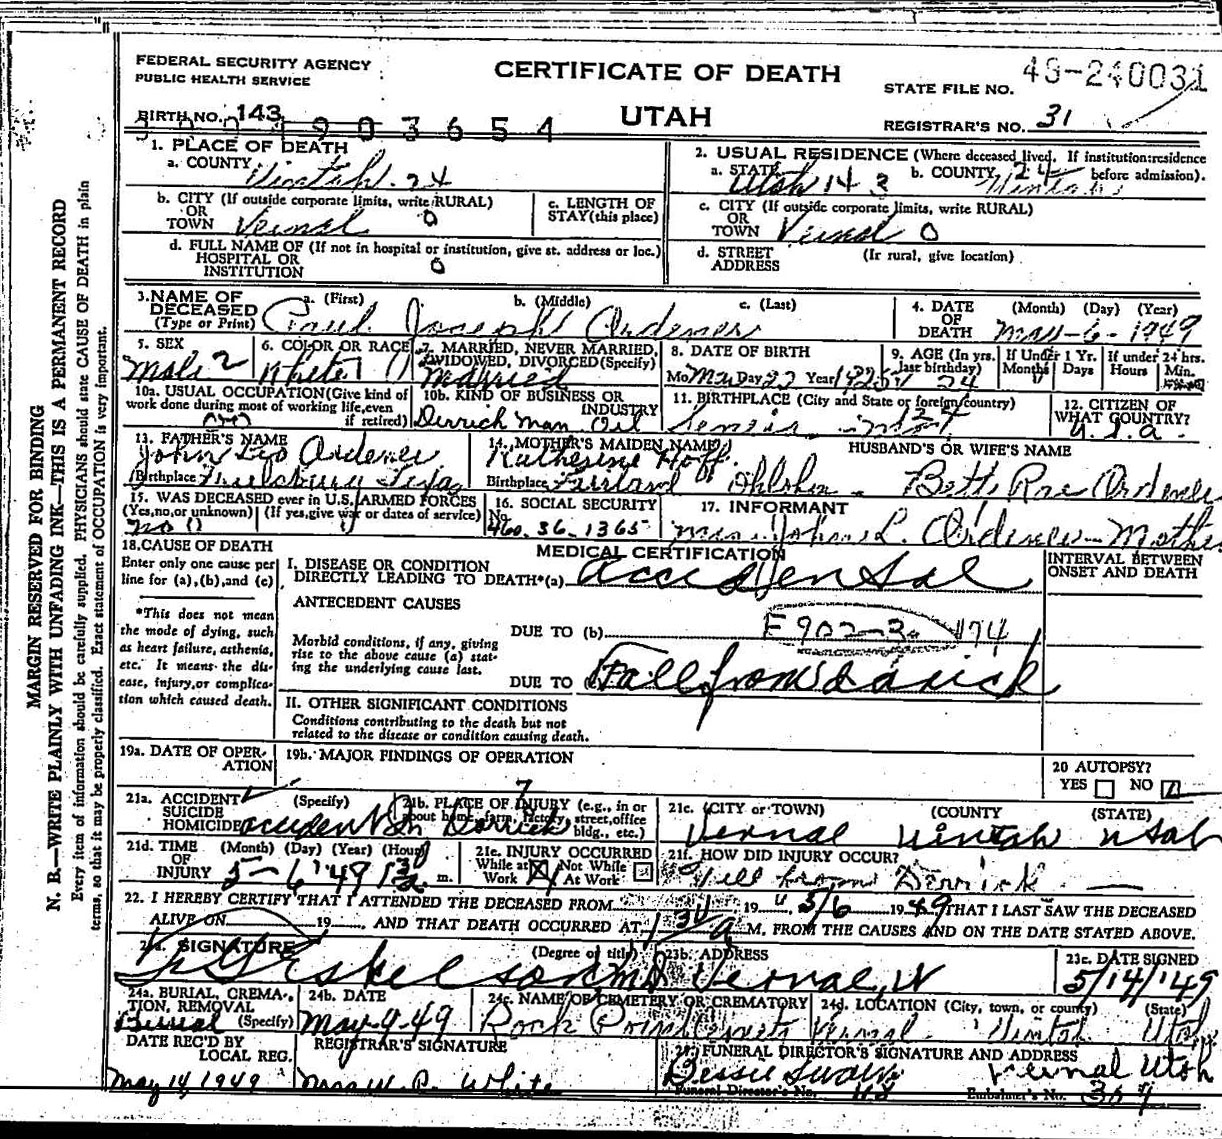 FEDERAL SECURITY AGENCY
PUBLIC HEALTH SERVICE
CERTIFICATE OF DEATH
UTAH
STATE FILE NO. 49-240031
REGISTRAR'S NO. 31
BIRTH NO. 143
1. PLACE OF DEATH
a. COUNTY Uintah 24
b. CITY (If outside corporate limits, write RURAL)
OR
TOWN Vernal 0
c. LENGTH OF
STAY (this place)
d. FULL NAME OF (If not in hospital or institution, give st. address or loc.)
HOSPITAL OR
INSTITUTION 0
2. USUAL RESIDENCE (Where deceased lived. If institution:residence
before admission).
a. STATE Utah 14 b. COUNTY 24 Uintah
c. CITY (If outside corporate limits, write RURAL)
OR
TOWN Vernal 0
d. STREET (If rural, give location)
ADDRESS
3. NAME OF a. (First) b. (Middle) c. (Last)
DECEASED
(Type or Print) Paul Joseph Ordener
4. DATE (Month) (Day) (Year)
OF
DEATH May-6-1949
5. SEX
Male 2
6. COLOR OR RACE
White
7. MARRIED, NEVER MARRIED,
WIDOWED, DIVORCED (Specify)
Married
8. DATE OF BIRTH
Mo May Day 22 Year 1925
9. AGE (In yrs. last birthday) 24
If Under 1 Yr.
Months Days
If under 24 hrs.
Hours Min.
10a. USUAL OCCUPATION (Give kind of
work done during most of working life, even
if retired)
10b. KIND OF BUSINESS OR
INDUSTRY
Derrick man Oil
11. BIRTHPLACE (City and State or foreign country)
12. CITIZEN OF
WHAT COUNTRY?
U.S.A.
13. FATHER'S NAME
John Leo Ordener
Birthplace Frelsburg Texas
14. MOTHER'S MAIDEN NAME
Katherine Hoff
Birthplace
HUSBAND'S OR WIFE'S NAME
Betty Rae Ordener
15. WAS DECEASED ever in U.S. ARMED FORCES
(Yes, no, or unknown) (If yes, give war or dates of service)
no
16. SOCIAL SECURITY
No. 460.36.1365
17. INFORMANT
Mrs. John L. Ordener - Mother
18. CAUSE OF DEATH
Enter only one cause per
line for (a), (b), and (c)
*This does not mean
the mode of dying, such
as heart failure, asthenia,
etc. It means the dis-
ease, injury, or complica-
tion which caused death.
MEDICAL CERTIFICATION
INTERVAL BETWEEN
ONSET AND DEATH
I. DISEASE OR CONDITION
DIRECTLY LEADING TO DEATH*(a) Accidental
ANTECEDENT CAUSES
Morbid conditions, if any, giving
rise to the above cause (a) stat-
ing the underlying cause last.
DUE TO (b) E902-3
DUE TO Fall from derrick
II. OTHER SIGNIFICANT CONDITIONS
Conditions contributing to the death but not
related to the disease or condition causing death.
19a. DATE OF OPER-
ATION
19b. MAJOR FINDINGS OF OPERATION
20 AUTOPSY?
YES NO
21a. ACCIDENT (Specify)
SUICIDE
HOMICIDE accident
21b. PLACE OF INJURY (e.g., in or
about home, farm, factory, street, office
bldg., etc.)
On Derrick
21c. (CITY or TOWN) (COUNTY (STATE)
Vernal Uintah Utah
21d. TIME (Month) (Day) (Year) (Hour)
OF
INJURY 5-6 '49 m.
21e. INJURY OCCURRED
While at Work Not While At Work
21f. HOW DID INJURY OCCUR?
Fell from Derrick
22. I HEREBY CERTIFY THAT I ATTENDED THE DECEASED FROM 19 5/6 1949 THAT I LAST SAW THE DECEASED
ALIVE ON 19 AND THAT DEATH OCCURRED AT 1 30 a M. FROM THE CAUSES AND ON THE DATE STATED ABOVE.
23a. SIGNATURE (Degree or title)
Eskelson MD
23b. ADDRESS
Vernal, U
23c. DATE SIGNED
5/14/'49
24a. BURIAL, CREMA-
TION, REMOVAL
(Specify) Burial
24b. DATE
May 9-49
24c. NAME OF CEMETERY OR CREMATORY
Rock Point
24d. LOCATION (City, town, or county) (State)
Vernal Uintah Utah
DATE REC'D BY
LOCAL REG.
May 14 1949
REGISTRAR'S SIGNATURE
Mrs W. P. White
25. FUNERAL DIRECTOR'S SIGNATURE AND ADDRESS
Bessie Swain Vernal Utah
Funeral Director's No.
Embalmer's No.
MARGIN RESERVED FOR BINDING
N. B.—WRITE PLAINLY WITH UNFADING INK—THIS IS A PERMANENT RECORD
Every item of information should be carefully supplied. PHYSICIANS should state CAUSE OF DEATH in plain
terms, so that it may be properly classified. Exact statement of OCCUPATION is very important.